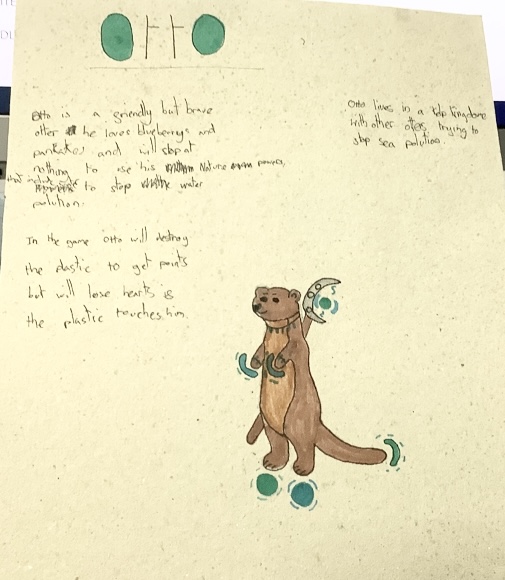 OttO
Otto is a friendly but brave
otter he loves blueberrys and
pankakes and will stop at
nothing to use his Nature powers,
that include
to stop water
polution.
In the game Otto will destroy
the plastic to get points
but will lose hearts is
the plastic touches him.
Otto lives in a kingdome
with other oters trying to
stop sea polution.